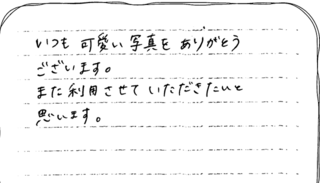 いつも 可愛い 写真を ありがとう
ございます。
また利用させていただきたいと
思います。